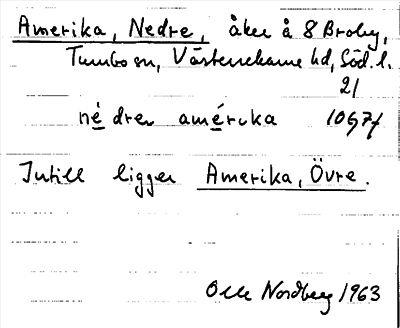 Amerika, Nedre, åker å 8 Broby,
Tumbo sn, Västerrekarne hd, Söd. l.
21
nédrer amérika 10g7f
Intill ligger Amerika, Övre.
Olle Nordberg 1963